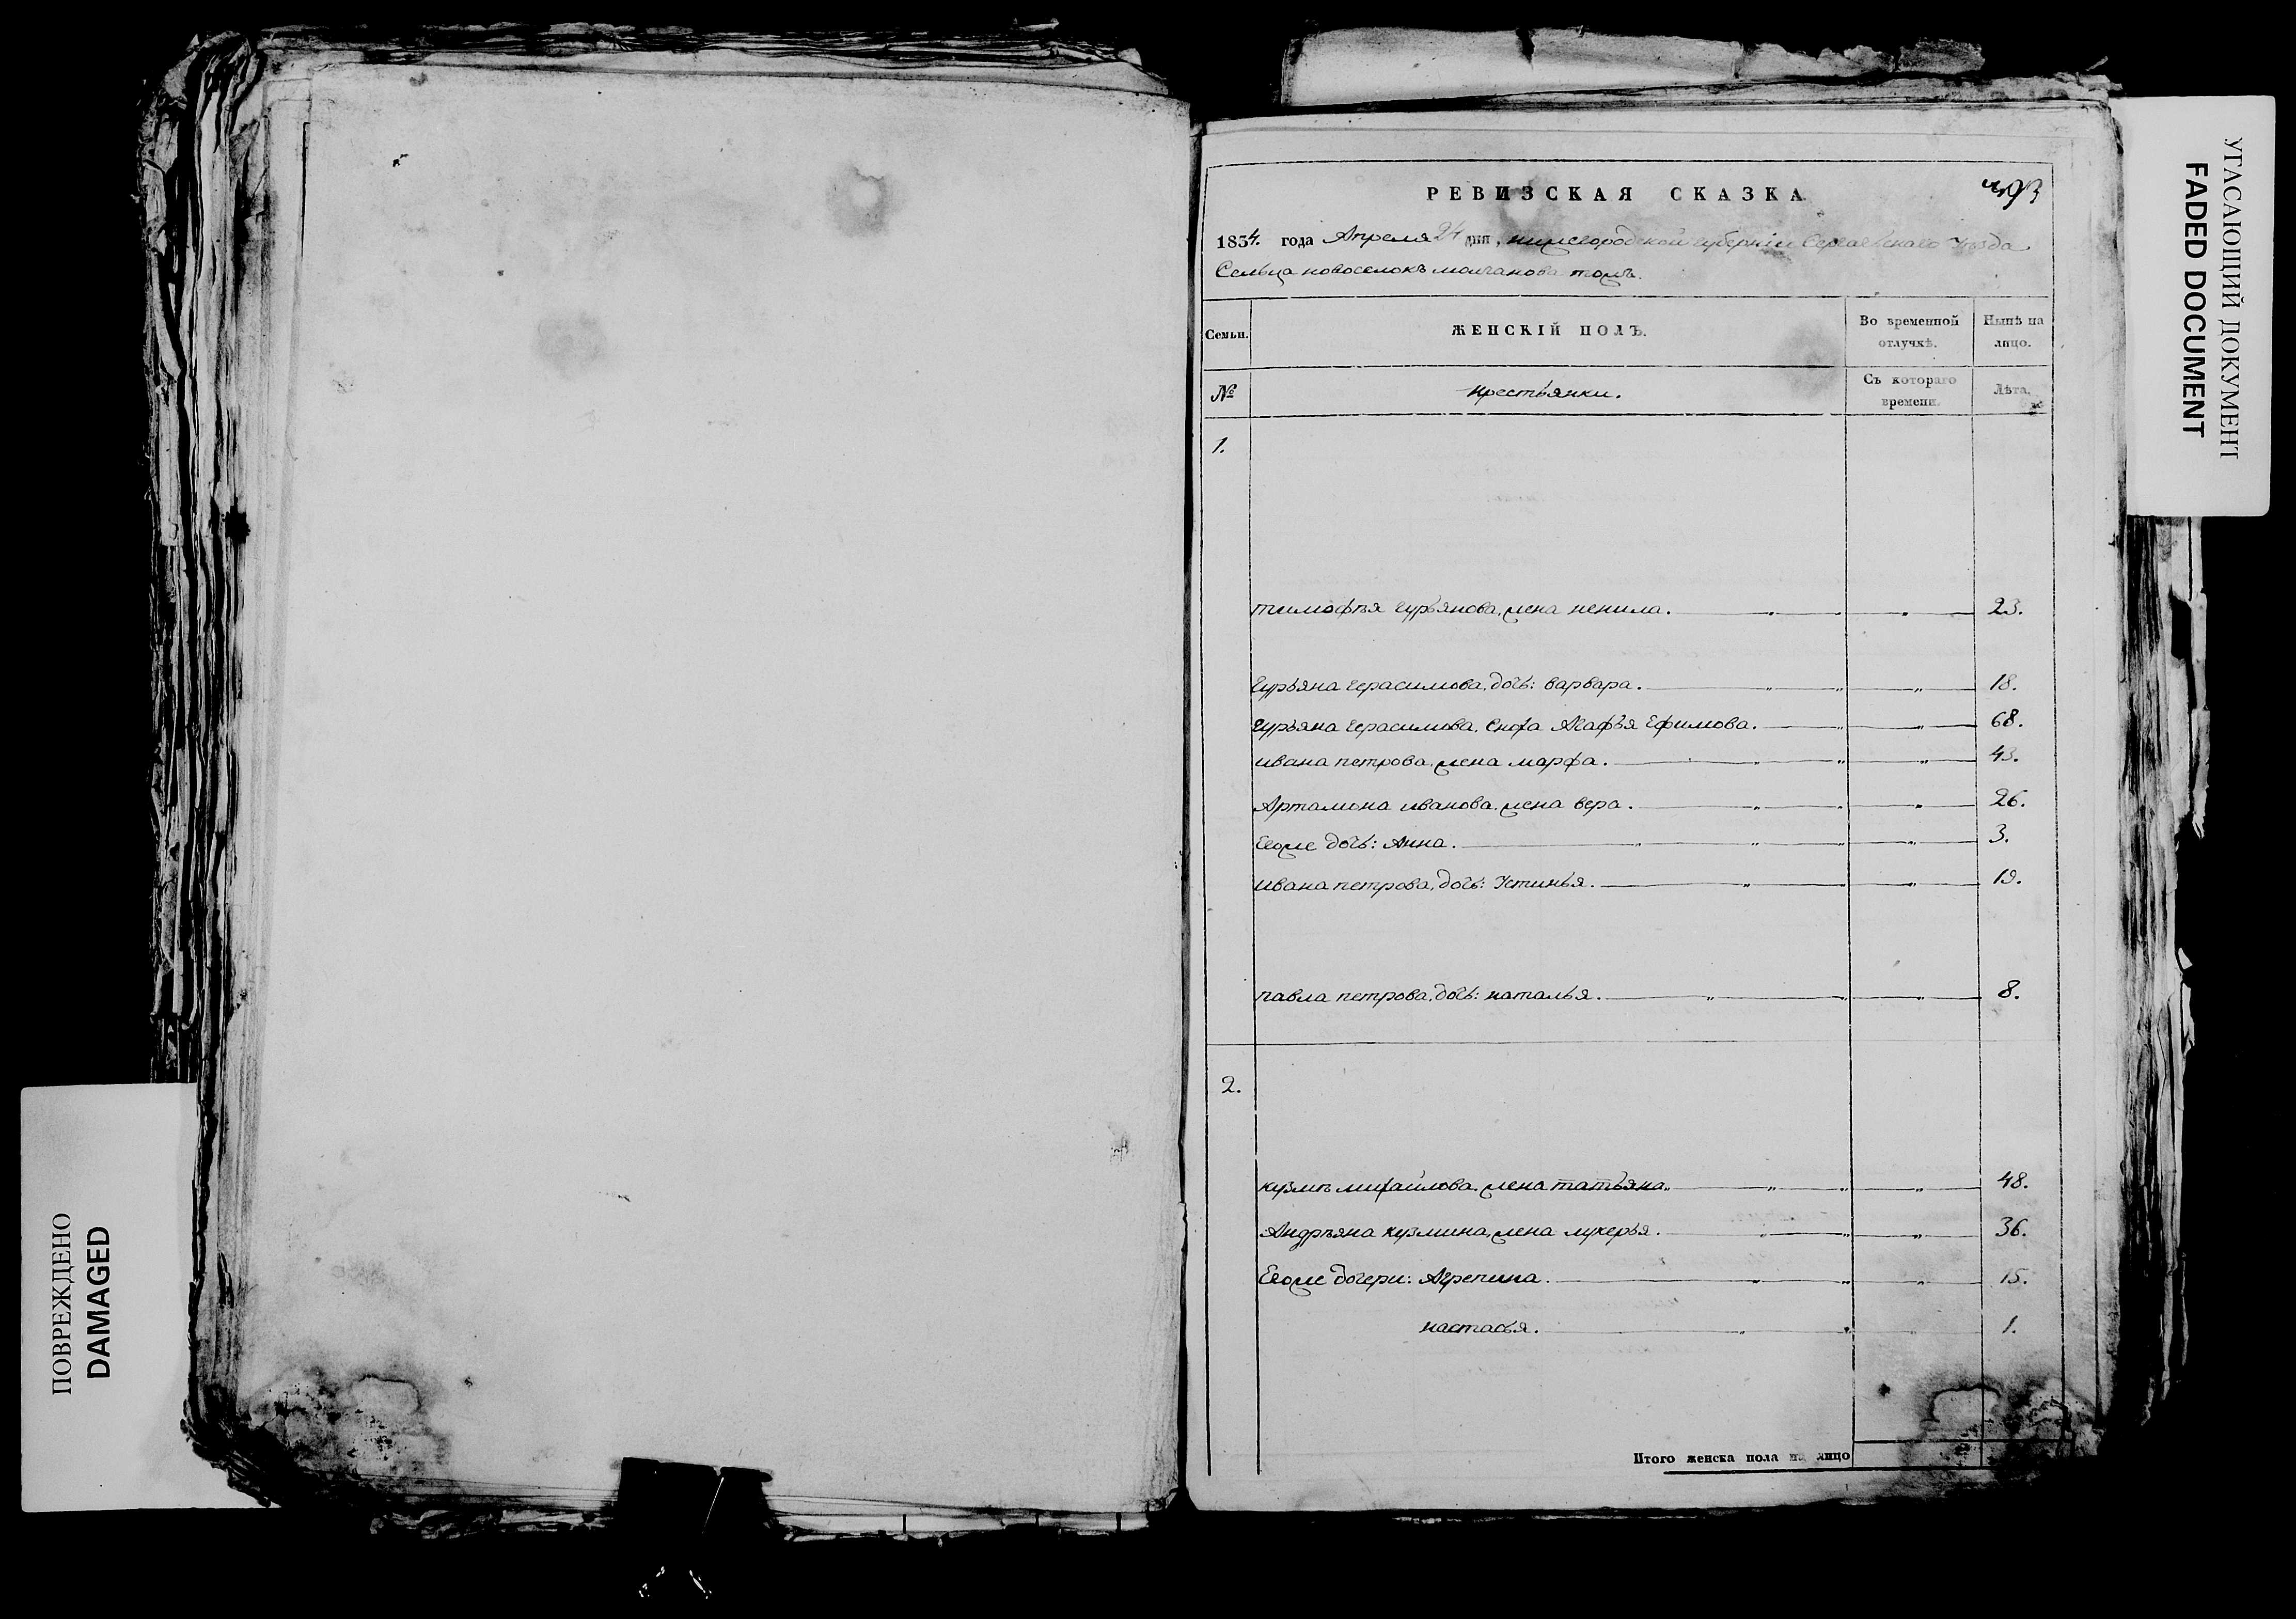 РЕВИЗСКАЯ СКАЗКА
493
1854. года Апреля 24 дня, нижегородской губерніи Сергачьскаго Уѣзда
Сельца новоселокъ молчанова тожъ.
Семьи.
ЖЕНСКІЙ ПОЛЪ.
Во временной отлучкѣ.
Нынѣ на лицо.
№
крестьянки.
Съ котораго времени.
Лѣта.
1.
тимофѣя гурьянова, жена ненила. 23.
гурьяна герасимова, дочь: варвара. 18.
гурьяна герасимова, сноха Агафья Ефимова. 68.
ивана петрова, жена марфа. 43.
Артамона иванова, жена вера. 26.
Егоже дочь: Анна. 3.
ивана петрова, дочь: Устинья. 19.
павла петрова, дочь: наталья. 8.
2.
кузмы михайлова, жена татьяна. 48.
Андрѣяна кузмина, жена лукерья. 36.
Егоже дочери: Агрепина. 15.
настасья. 1.
Итого женска пола на лицо
УГАСАЮЩИЙ ДОКУМЕНТ
FADED DOCUMENT
ПОВРЕЖДЕНО
DAMAGED